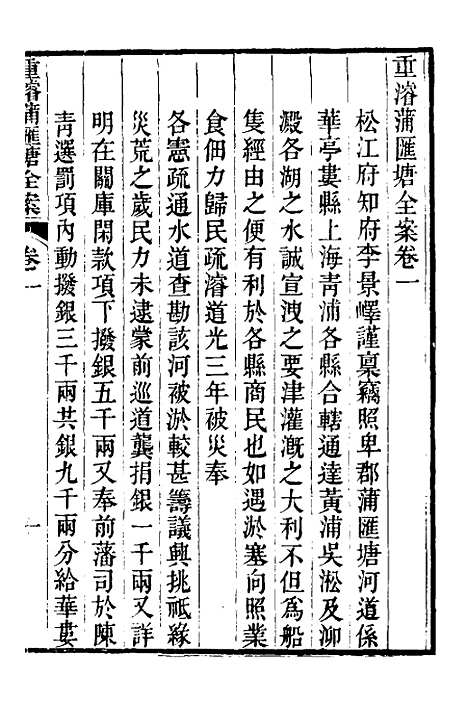 重濬蒲匯塘全案卷一
松江府知府李景嶧謹稟竊照卑郡蒲匯塘河道係
華亭婁縣上海青浦各縣合轄通達黃浦吳淞及泖
澱各湖之水誠宣洩之要津灌溉之大利不但爲船
隻經由之便有利於各縣商民也如遇淤塞向照業
食佃力歸民疏濬道光三年被災奉
各憲疏通水道查勘該河被淤較甚籌議興挑祗緣
災荒之歲民力未逮蒙前巡道龔捐銀一千兩又詳
明在關庫閑款項下撥銀五千兩又奉前藩司於陳
青選罰項內動撥銀三千兩共銀九千兩分給華婁
重濬蒲匯塘全案
卷一
一